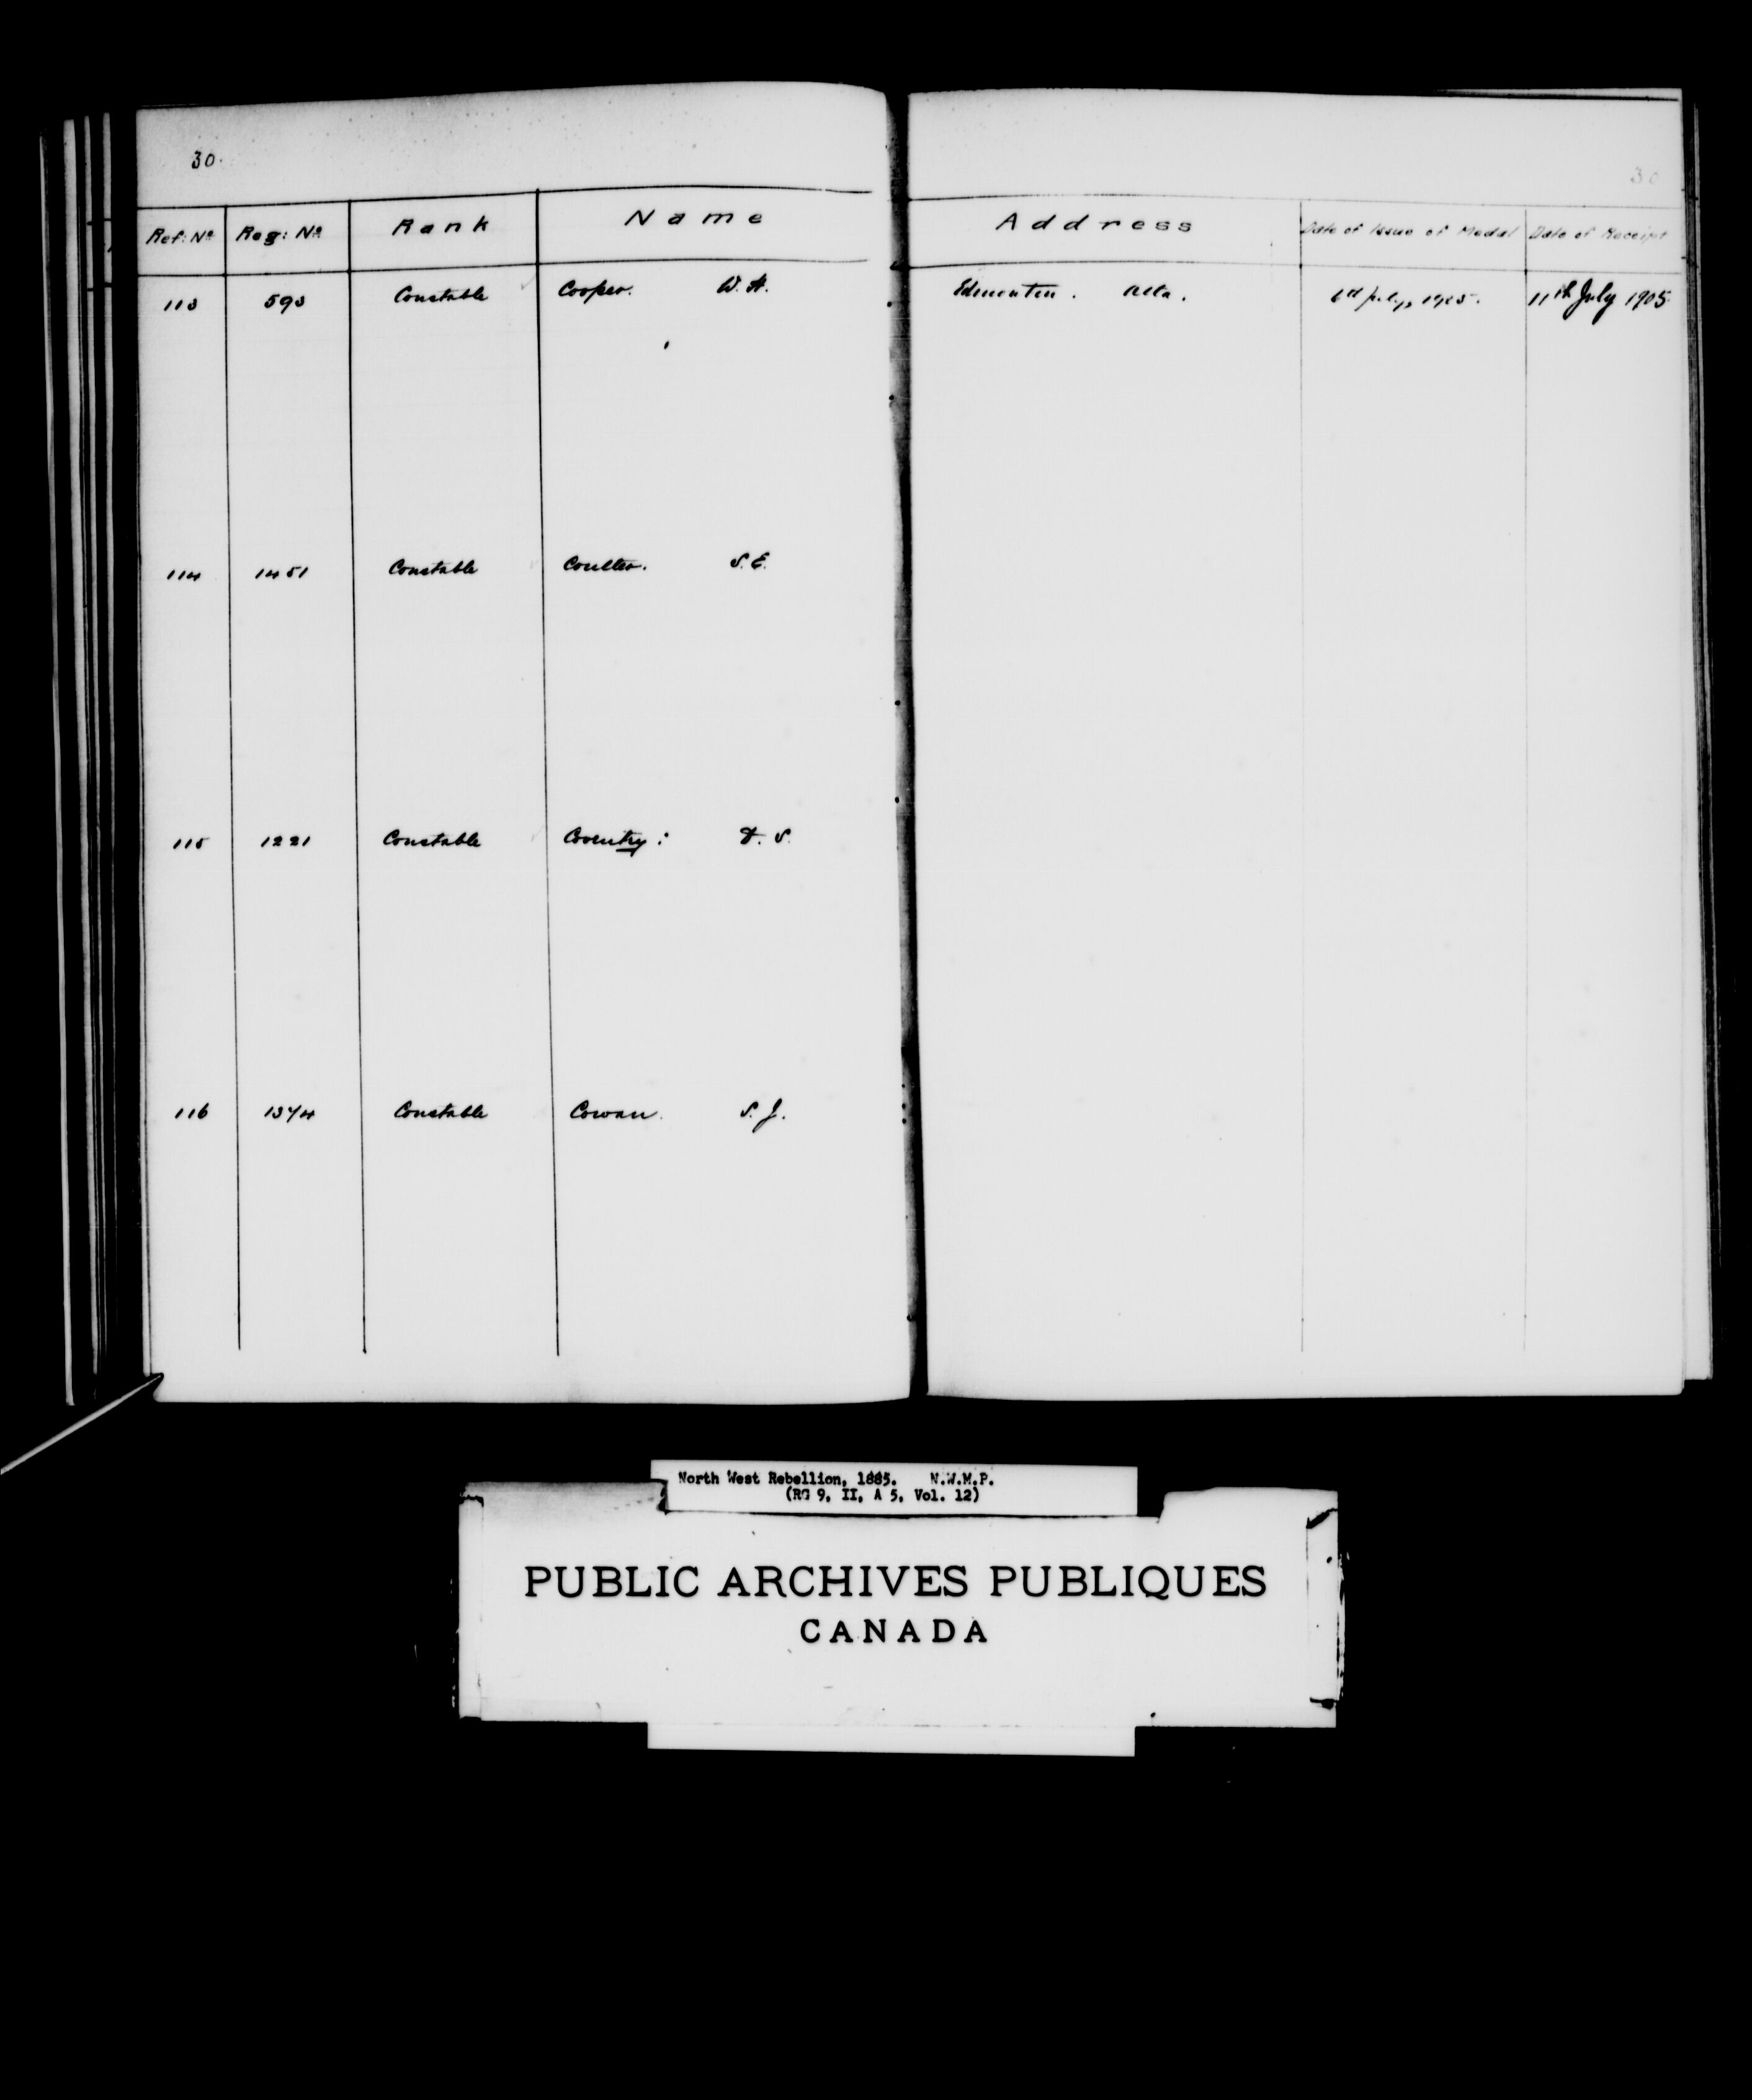 30.
30
Ref: Nº Reg: Nº Rank Name Address Date of Issue of Medal Date of Receipt
113 593 Constable Cooper. W. H. Edmonton. Alta. 11th July 1905
114 1451 Constable Coulter. S. E.
115 1221 Constable Coventry: S.
116 1374 Constable Cowan. S. J.
North West Rebellion, 1885. N.W.M.P.
(RG 9, II, A 5, Vol. 12)
PUBLIC ARCHIVES PUBLIQUES
CANADA